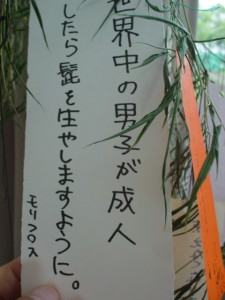 世界中の男子が成人
したら髭を生やしますように。
モリフロ入